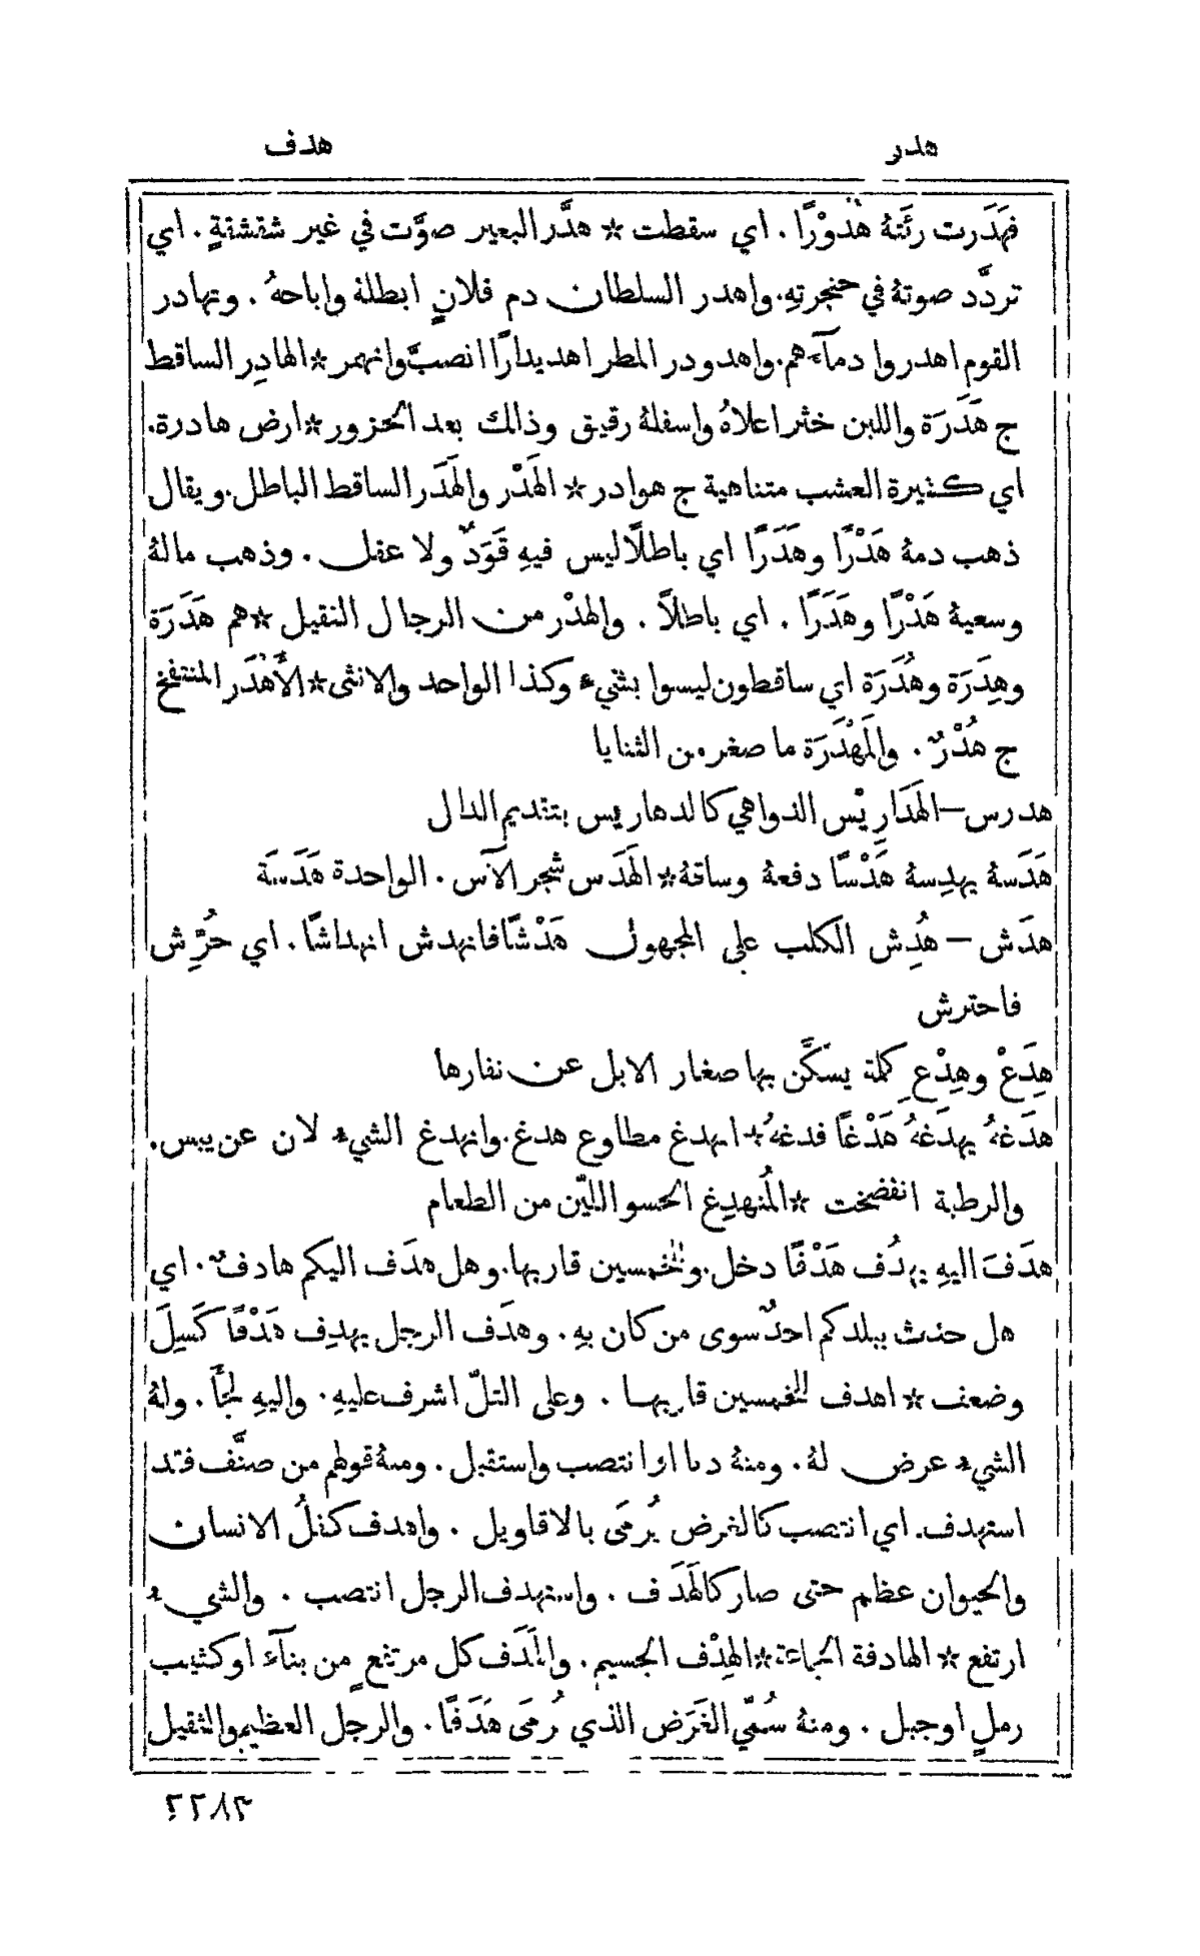 هدر هدف
فهَدَرت رئَتهُ هُدُوْرًا . اي سقطت * هدَّر البعير صوَّت في غير شقشقةٍ . اي
تردَّد صوتهُ في حنجرتِهِ . واهدر السلطان دم فلانٍ ابطلهُ واباحهُ . وتهادر
القوم اهدروا دمآءَهم . واهدودر المطر اهديدارًا انصبَّ وانهمر * الهادِر الساقط
ج هَدَرَة واللبن خثر اعلاهُ واسفلهُ رقيق وذلك بعد الحزور * ارض هادرة .
اي كثيرة العشب متناهية ج هوادر * الهَدْر والهَدَر الساقط الباطل . ويقال
ذهب دمهُ هَدْرًا وهَدَرًا اي باطلًا ليس فيهِ قَوَدٌ ولا عقل . وذهب مالهُ
وسعيهُ هَدْرًا وهَدَرًا . اي باطلًا . والهدْر من الرجال الثقيل * هم هَدَرَة
وهِدَرَة وهُدَرَة اي ساقطون ليسوا بشيء وكذا الواحد والانثى * الأَهْدَر المنتفخ
ج هُدْرٌ . والمَهْدَرَة ما صغر من الثنايا
هدرس — الهَدَارِيْس الدواهي كالدهاريس بتقديم الدال
هَدَسَهُ يهدِسهُ هَدْسًا دفعهُ وساقهُ * الهَدَس شجر الآس . الواحدة هَدَسَة
هدَش — هُدِش الكلب على المجهول هَدْشًا فانهدش انهداشًا . اي حُرِّش
فاحترش
هِدَعْ وهِدْعِ كلمة يسَكَّن بها صغار الابل عن نفارها
هدَغهُ يهدَغهُ هَدْغًا فدغهُ * انهدغ مطاوع هدغ . وانهدغ الشيء لان عن يبس .
والرطبة انفضخت * المُنهدِغ الحسو اللَّيّن من الطعام
هدَفَ اليهِ يهدُف هَدْفًا دخل . وللخمسين قاربها . وهل هدَف اليكم هادفٌ . اي
هل حدث ببلدكم احدٌ سوى من كان بهِ . وهدَف الرجل يهدِف هَدْفًا كَسِلَ
وضعف * اهدف للخمسين قاربها . وعلى التلّ اشرف عليهِ . واليهِ لجأَ . ولهُ
الشيء عرض لهُ . ومنهُ دنا انتصب واستقبل . ومنهُ قولهم من صنَّف فقد
استهدف . اي انتصب كالغرض يُرمَى بالاقاويل . واهدف كفلُ الانسان
والحيوان عظم حتى صار كالهَدَف . واستهدف الرجل انتصب . والشيء
ارتفع * الهادفة الجماعة * الهِدْف الجسيم . والهَدَف كل مرتفعٍ من بنآء او كثيب
رملٍ او جبل . ومنهُ سُمّي الغَرَض الذي يُرمَى هَدَفًا . والرجل العظيم والثقيل
٢٢٨٣